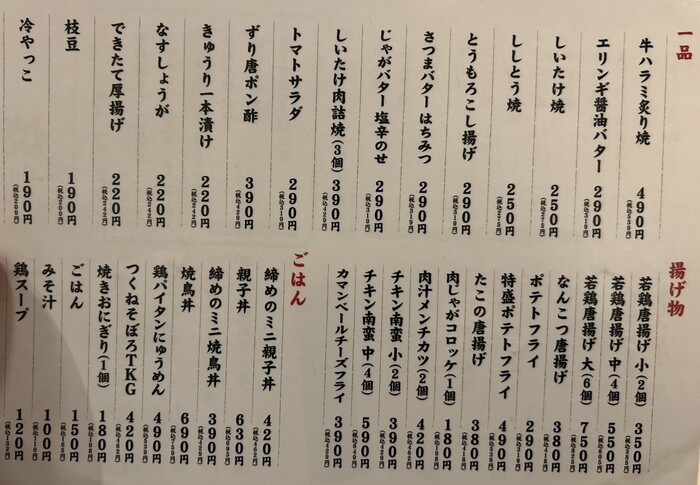 一品
牛ハラミ炙り焼 490円(税込539円)
エリンギ醤油バター 290円(税込319円)
しいたけ焼 250円(税込275円)
ししとう焼 250円(税込275円)
とうもろこし揚げ 290円(税込319円)
さつまバター はちみつ 290円(税込319円)
じゃがバター 塩辛のせ 290円(税込319円)
しいたけ肉詰焼(3個) 390円(税込429円)
トマトサラダ 290円(税込319円)
ずり唐ポン酢 390円(税込429円)
きゅうり一本漬け 220円(税込242円)
なすしょうが 220円(税込242円)
できたて厚揚げ 220円(税込242円)
枝豆 190円(税込209円)
冷やっこ 190円(税込209円)
揚げ物
若鶏唐揚げ 小(2個) 350円(税込385円)
若鶏唐揚げ 中(4個) 550円(税込605円)
若鶏唐揚げ 大(6個) 750円(税込825円)
なんこつ唐揚げ 380円(税込418円)
ポテトフライ 290円(税込319円)
特盛ポテトフライ 490円(税込539円)
たこの唐揚げ 380円(税込418円)
肉じゃがコロッケ(1個) 180円(税込198円)
肉汁メンチカツ(2個) 420円(税込462円)
チキン南蛮 小(2個) 390円(税込429円)
チキン南蛮 中(4個) 590円(税込649円)
カマンベールチーズフライ 390円(税込429円)
ごはん
締めのミニ親子丼 420円(税込462円)
親子丼 630円(税込693円)
締めのミニ焼鳥丼 390円(税込429円)
焼鳥丼 690円(税込759円)
鶏パイタンにゅうめん 490円(税込539円)
つくねそぼろTKG 420円(税込462円)
焼きおにぎり(1個) 180円(税込198円)
ごはん 150円(税込165円)
みそ汁 100円(税込110円)
鶏スープ 120円(税込132円)